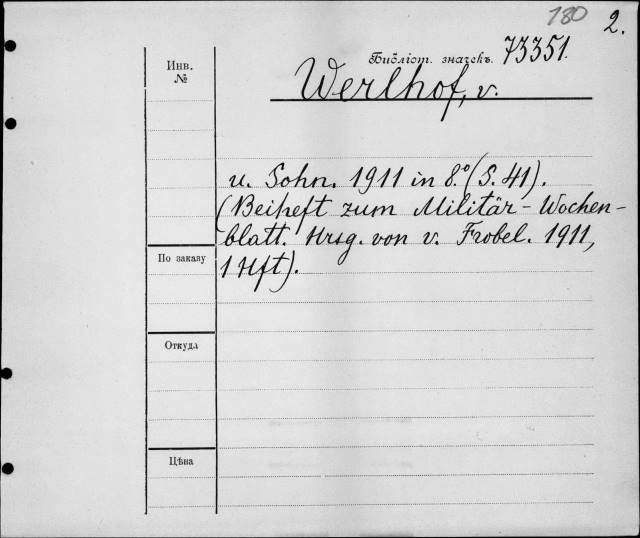 180 2.
Инв.
№
Библіот. значекъ. 73351.
Werlhof, v.
u. Sohn. 1911 in 8.° (S. 41).
(Beiheft zum Militär-Wochen-
blatt. Hrsg. von v. Frobel. 1911,
1 Hft).
По заказу
Откуда
Цѣна